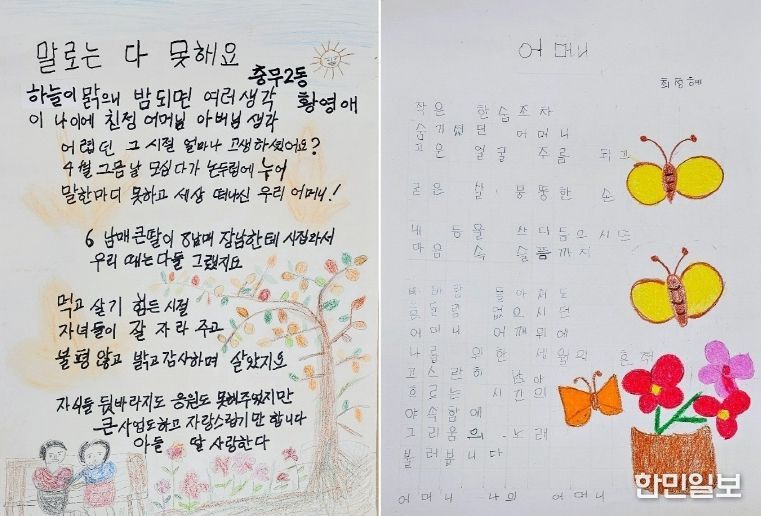 말로는 다 못해요
충무2동
황영애
하늘이 맑으니 밤되면 여러생각
이 나이에 친정 어머님 아버님 생각
어렵던 그 시절 얼마나 고생하셨어요?
4월 그믐날 모심다가 논두렁에 누어
말한마디 못하고 세상 떠나신 우리 어머니!
6남매 큰딸이 8남매 장남한테 시집와서
우리 때는 다들 그랬지요
먹고 살기 힘든 시절
자녀들이 잘 자라 주고
불평 않고 밝고 감사하며 살았지요
자식들 뒷바라지도 응원도 못해주었지만
큰 사업도하고 자랑스럽기만 합니다
아들 딸 사랑한다
어머니
최정혜
작은 한숨조차
숨기셨던 어머니
고운 얼굴 주름 되고
굳은 살, 뭉뚱한 손
내 등을 쓰다듬으시던
마음 속 슬픔까지
비바람 몰아쳐도
흔들림 없으시던
어머니 어깨위에
나를 위한 세월의 흔적
고스란히 남아
흐르는 시간의
야속함에
그리움의 노래
불러봅니다
어머니 나의 어머니
한민일보